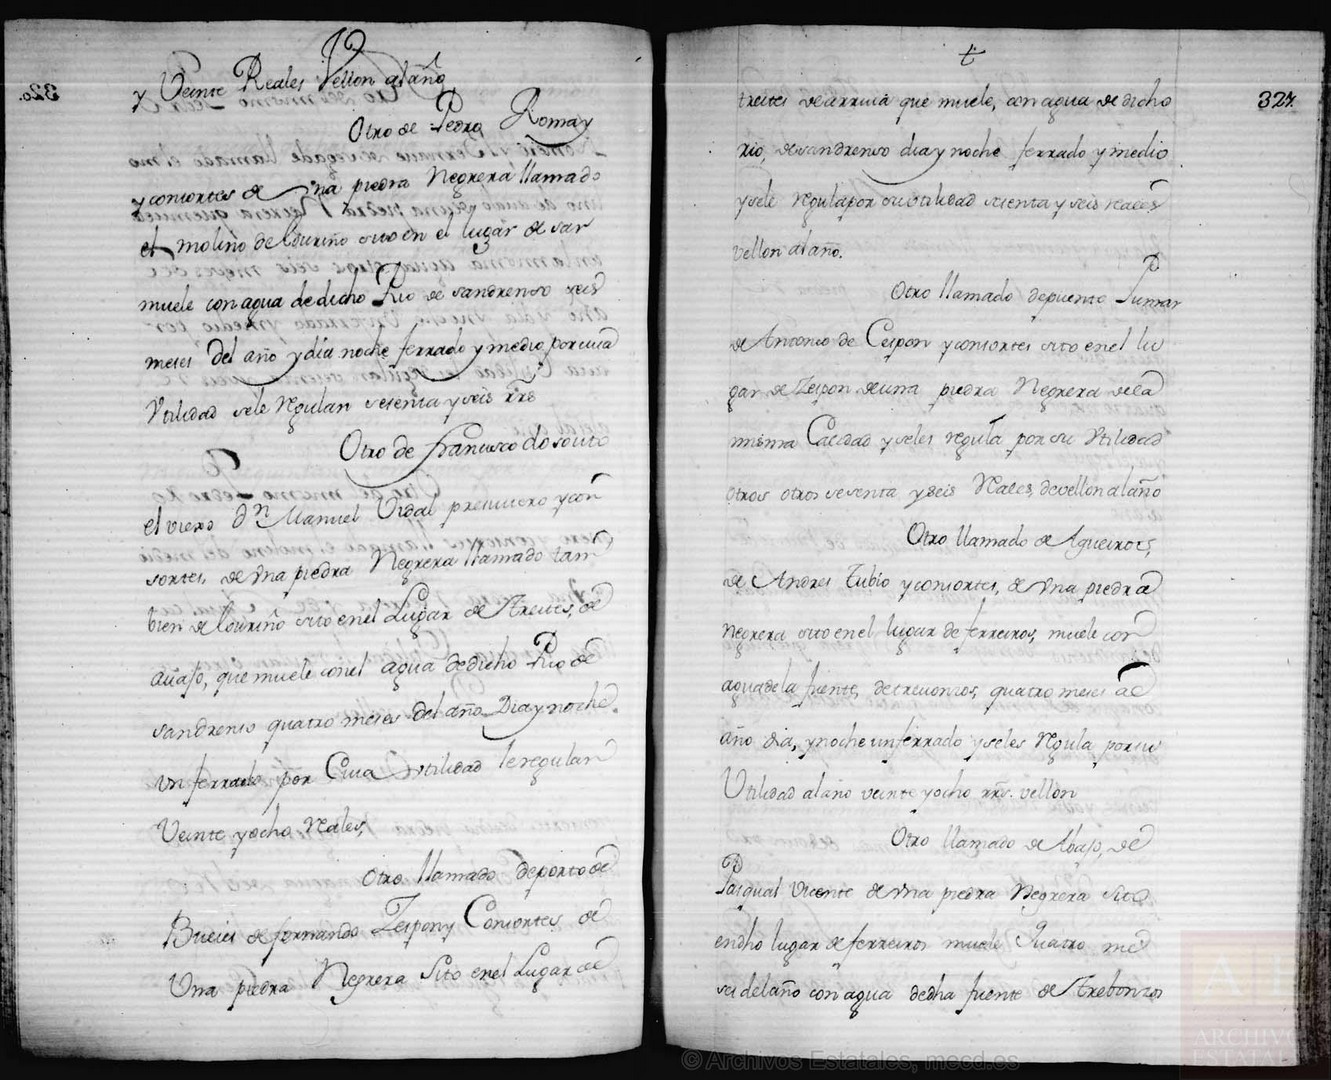 y Veinte Reales Vellon al año
Otro de Pedro Romay
y consortes de Una piedra Negrera llamado
el molino de Couriño sito en el lugar de sar
muele con agua de dicho Rio de sandrenso seis
meses del año y dia noche ferrado y medio por cuia
Vtilidad se le Regulan sesenta y seis rrs
Otro de Francisco do souto
el viexo Dn Manuel Vidal presuitero y con
sortes, de vna piedra Negrera llamado tam
bien de Couriño sito en el Lugar de Areites, de
auajo, que muele con el agua de dicho Rio de
sandrenso quatro meses del año Dia y noche
un ferrado por Cuia vtilidad le regulan
Veinte y ocho Reales,
Otro llamado de porto de
Bueies de fernando Zespon y Consortes de
Una piedra Negrera Sito en el Lugar de
327.
treites de arriua que muele, con agua de dicho
rio, de sandrenso dia y noche ferrado y medio
y se le regula por su vtilidad sesenta y seis reales
vellon al año.
Otro llamado de puente Pumar
de Antonio de Cespon y consortes sito en el lu
gar de Zespon de una piedra Negrera de la
misma Calidad y se les regula por su Vtilidad
otros otros sesenta y seis Reales, de vellon al año
Otro llamado de Agueiros,
de Andres Tubio y consortes, de vna piedra
negrera sito en el lugar de ferreiros, muele con
agua de la fuente, de trevonzos, quatro meses de
año dia, y noche un ferrado y se les Regula por su
Utilidad al año veinte y ocho rrs. vellon
Otro llamado de Abajo, de
Pasqual Vicente de vna piedra Negrera sito
en dho lugar de ferreiros muele Quatro me
ses del año con agua de dha fuente de Trebonzos
© Archivos Estatales, mecd.es
ARCHIVOS
ESTATALES